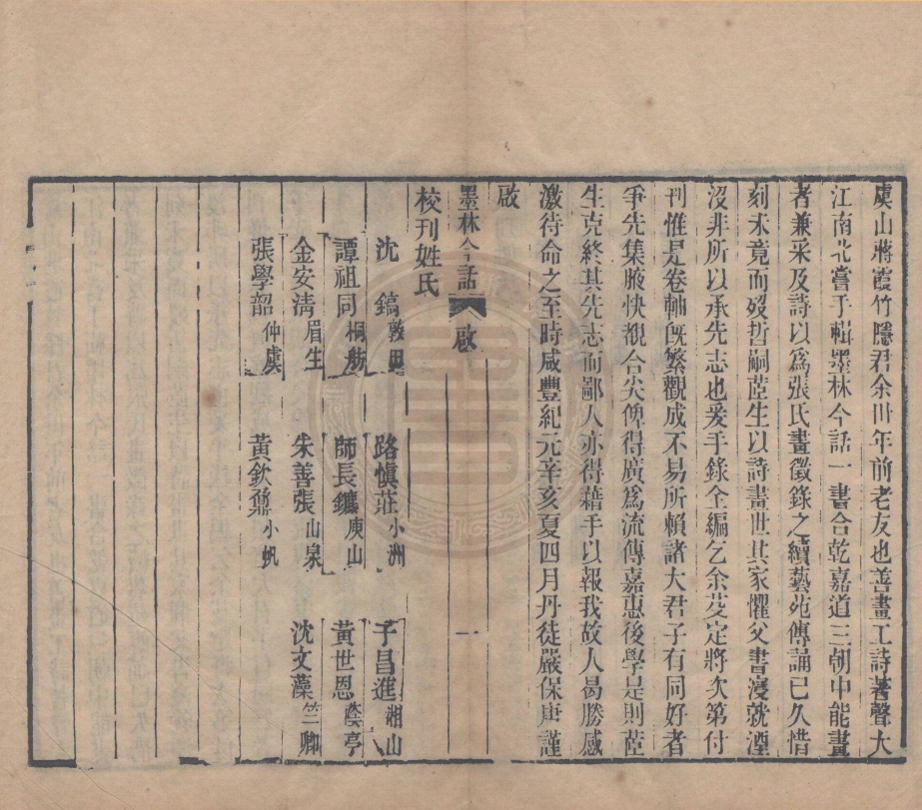 虞山蔣霞竹隱君余卅年前老友也善畫工詩著聲大
江南北嘗手輯墨林今話一書合乾嘉道三朝中能畫
者兼采及詩以爲張氏畫徵錄之續藝苑傳誦已久惜
刻未竟而歿哲嗣茝生以詩畫世其家懼父書寖就湮
沒非所以承先志也爰手錄全編乞余芟定將次第付
刊惟是卷軸旣繁觀成不易所賴諸大君子有同好者
爭先集腋快覩合尖俾得廣爲流傳嘉惠後學是則茝
生克終其先志而鄙人亦得藉手以報我故人曷勝感
激待命之至時咸豐紀元辛亥夏四月丹徒嚴保庸謹
啟
墨林今話 啟 一
校刊姓氏
沈鎬敦田 路愼莊小洲 于昌進湘山
譚祖同桐舫 師長鑣庾山 黃世恩蔭亭
金安淸眉生 朱善張山泉 沈文藻竺卿
張學韶仲虞 黃欽鼐小帆